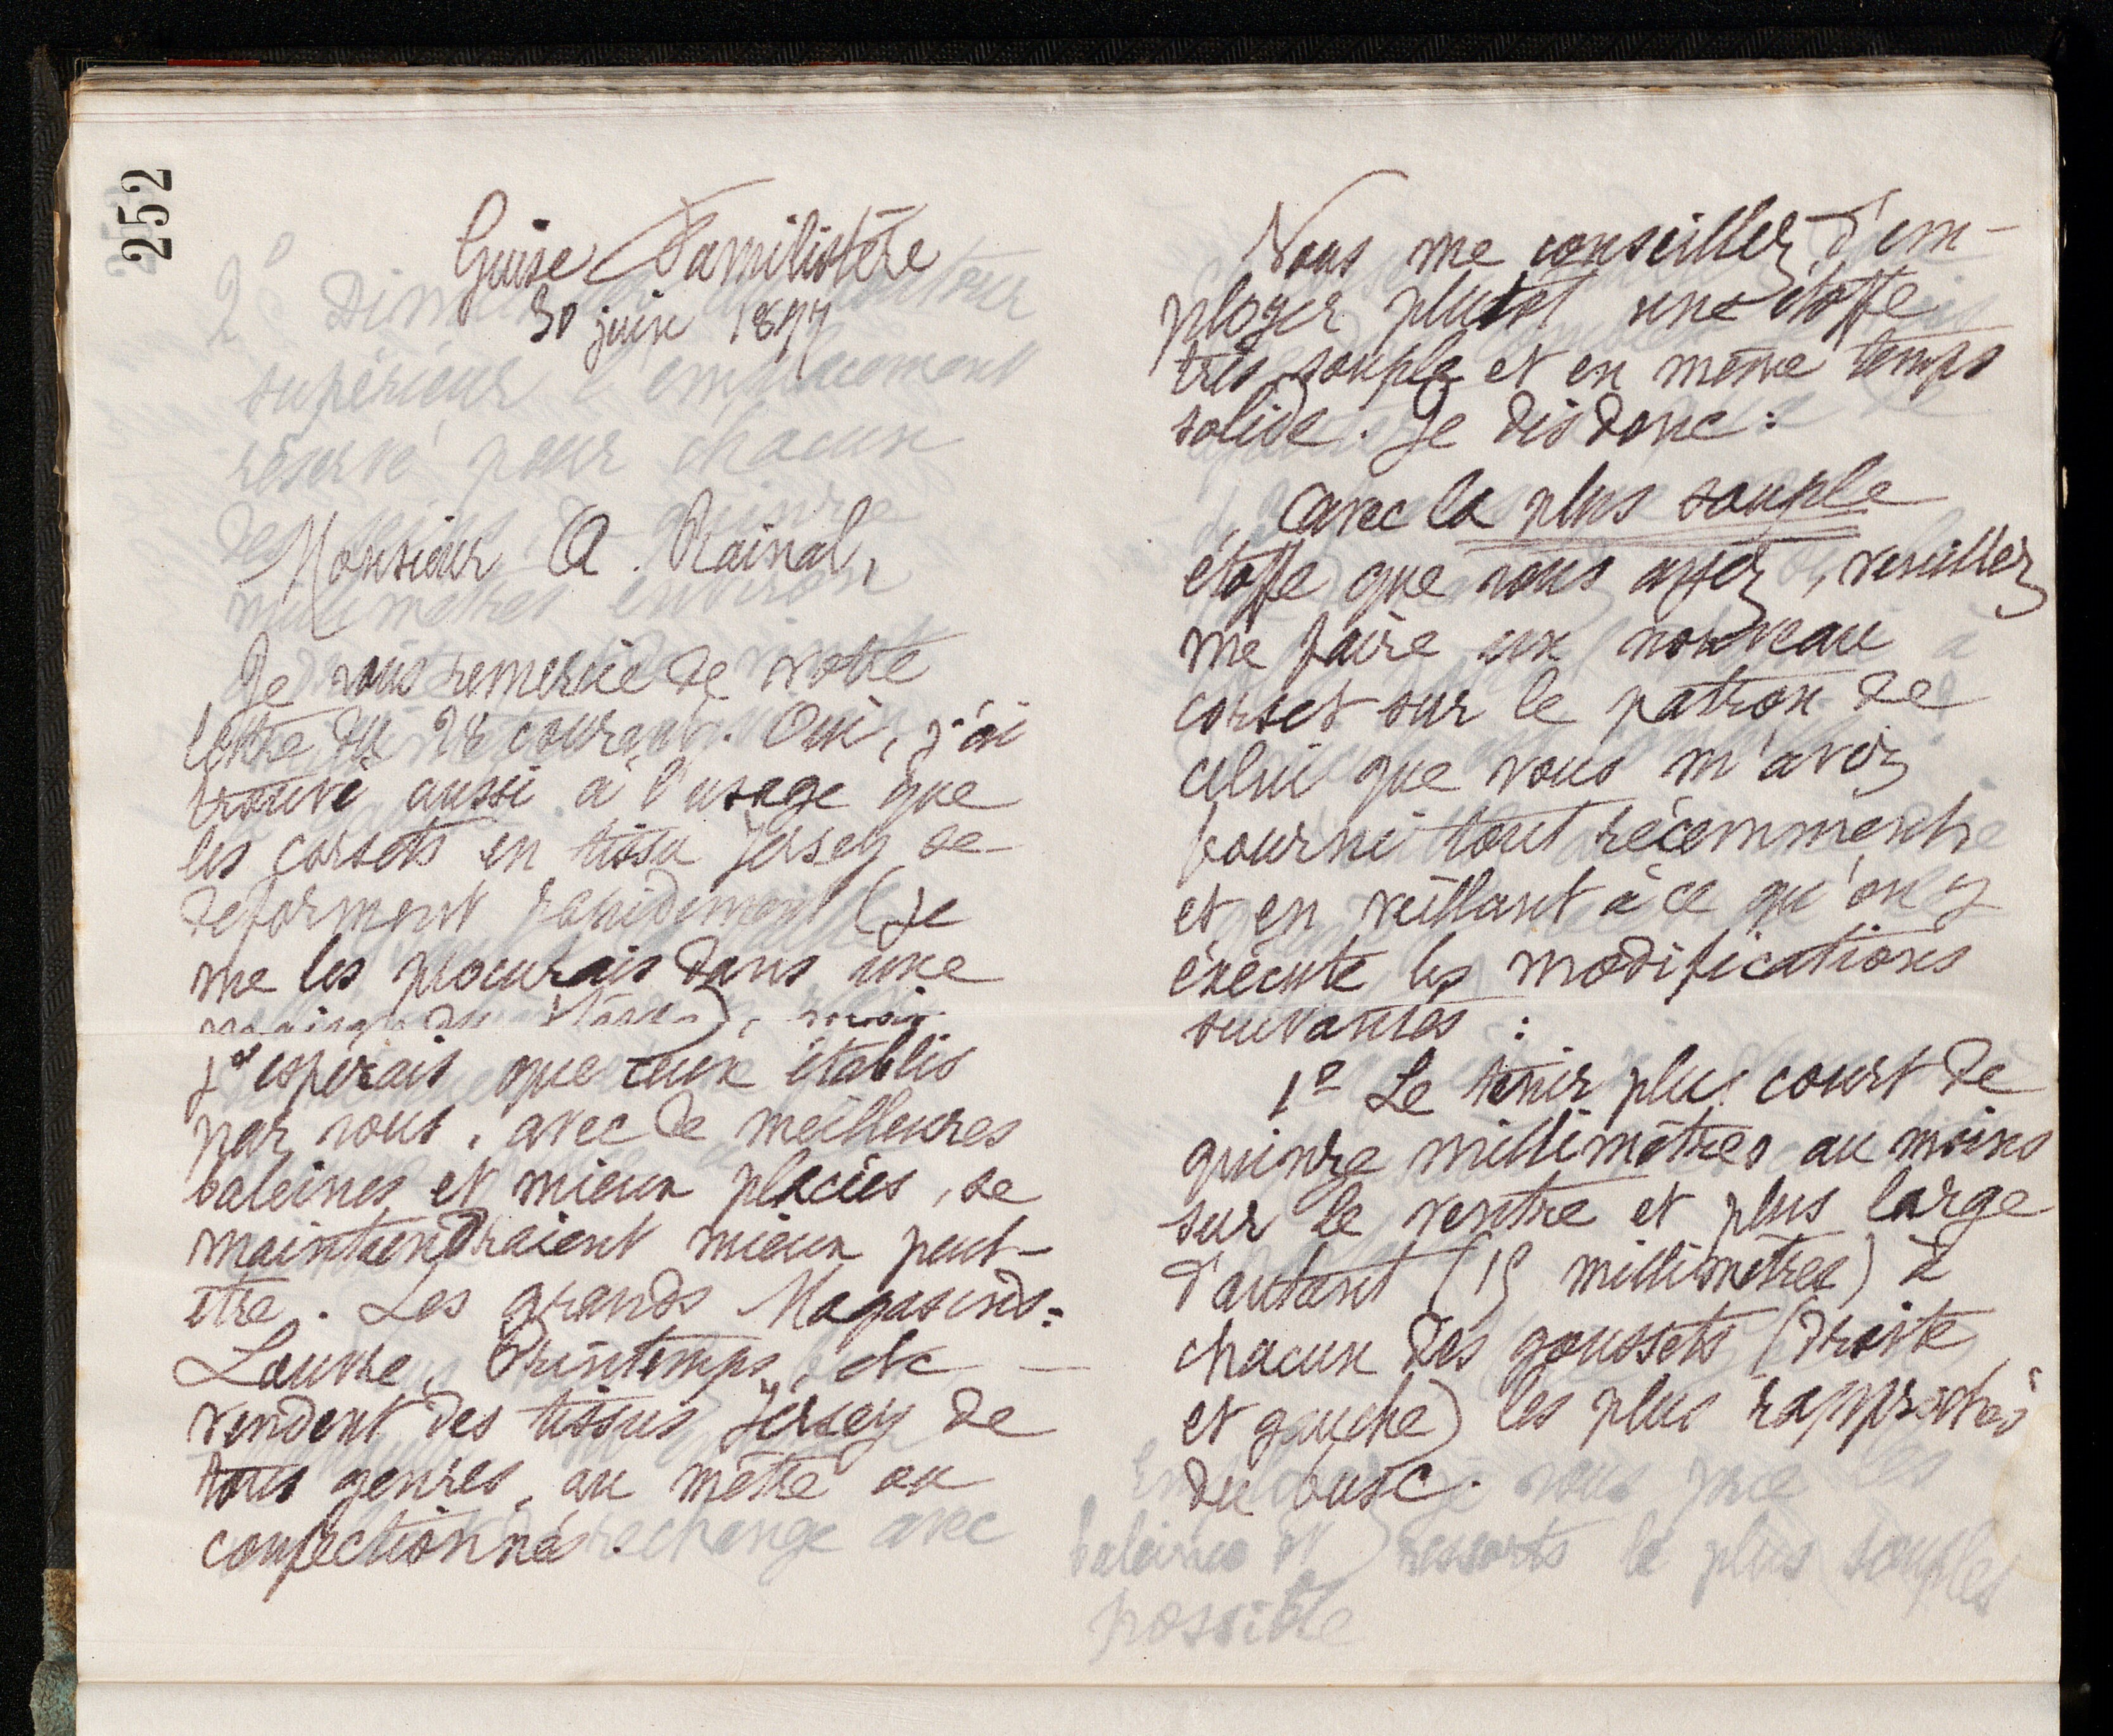 252
Guise Familistère
30 juin 1897
Monsieur A. Rainal,
Je vous remercie de votre
lettre du 28 courant. Oui, j'ai
trouvé aussi à l'usage que
les corsets en tissu Jersey se
déforment rapidement (je
me les procurais dans une
maison de), mais
j'espérais que ceux établis
par vous, avec de meilleures
baleines et mieux placées, se
maintiendraient mieux peut-
être. Les grands Magasins:
Louvre, Printemps, etc —
vendent des tissus Jersey de
tous genres, au mètre ou
confectionnés.
Vous me conseillez d'em-
ployer plutôt une étoffe
très souple et en même temps
solide. Je dis donc:
avec la plus souple
étoffe que vous ayez, veuillez
me faire un nouveau
corset sur le patron de
celui que vous m'avez
fourni tout récemment
et en veillant à ce qu'on y
exécute les modifications
suivantes :
1º Le tenir plus court de
quinze millimètres au moins
sur le ventre et plus large
d'autant (15 millimètres) à
chacun des goussets (droite
et gauche) les plus rapprochés
du busc.